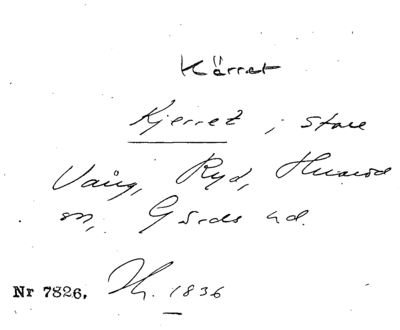 Kärret
Kjerret, i Stora
Vång, Ryd, Huarod
sn, Gärds hd.
Nr 7826. 1836